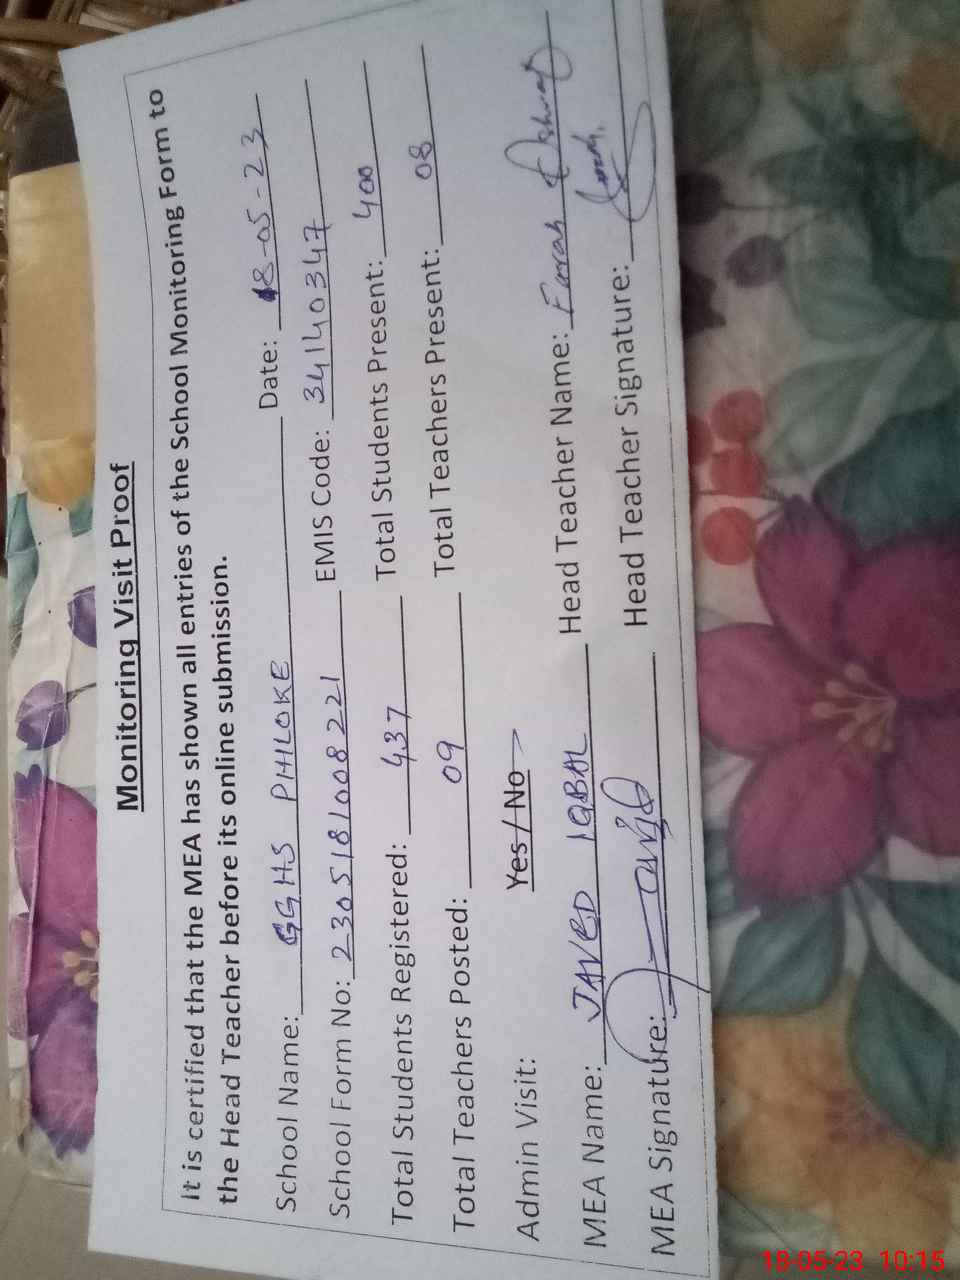 Monitoring Visit Proof
It is certified that the MEA has shown all entries of the School Monitoring Form to
the Head Teacher before its online submission.
School Name: GGHS PHILOKE Date: 18-05-23
School Form No: 2305181008221 EMIS Code: 34140347
Total Students Registered: 437 Total Students Present: 400
Total Teachers Posted: 09 Total Teachers Present: 08
Admin Visit: Yes / No
MEA Name: JAVED IQBAL Head Teacher Name: Farah Ashraf
MEA Signature: Head Teacher Signature:
18-05-23 10:15